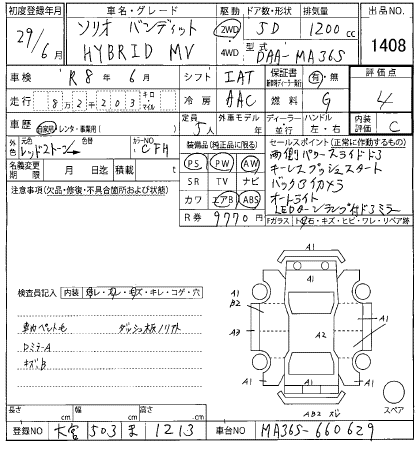 初度登録年月 車名・グレード 駆動 ドア数・形状 排気量 出品NO.
29/6月 ソリオ バンディット 2WD 5D 1200cc
HYBRID MV 4WD 型式 DAA-MA36S 1408
車検 R8年6月 シフト IAT 保証書 有・無 評価点
走行 8万2千203 キロ マイル 冷房 AAC 燃料 G 4
車歴 自家用 レンタ・事業用( ) 定員 5人 外車モデル ディーラー・並行 ハンドル 左・右 内装評価 C
外色 元色 レッド2トーン 色替 カラーNO. CFH 装備品(純正品に限る) セールスポイント(正常に動作するもの)
名義変更期限 月 日迄 積載 t PS PW AW 両側パワースライドドア
SR TV ナビ キーレスプッシュスタート
注意事項(欠品・修復・不具合箇所および状態) カワ エアB ABS バックカメラ
オートライト
R券 9770円 LEDターンランプ付ドアミラー
Fガラス トビ石・キズ・ヒビ・ワレ・リペア跡
検査員記入 内装 ヨゴレ・スレ・キズ・キレ・コゲ・穴
ダッシュ板ノリ
DミラーA
キズB
A1
A1 A1 A1
B2
A3 A2 A2
A1 A1
A1
AB2
スペア
長さ cm 幅 cm 高さ cm
登録NO 大宮 503 ま 1213 車台NO MA36S-660629